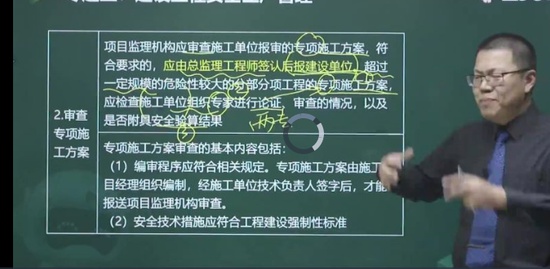 项目监理机构应审查施工单位报审的专项施工方案，符
合要求的，应由总监理工程师签认后报建设单位，超过
一定规模的危险性较大的分部分项工程的专项施工方案，
应检查施工单位组织专家进行论证、审查的情况，以及
是否附具安全验算结果
两专
2.审查
专项施
工方案
专项施工方案审查的基本内容包括：
（1）编审程序应符合相关规定。专项施工方案由施工
目经理组织编制，经施工单位技术负责人签字后，才能
报送项目监理机构审查。
（2）安全技术措施应符合工程建设强制性标准